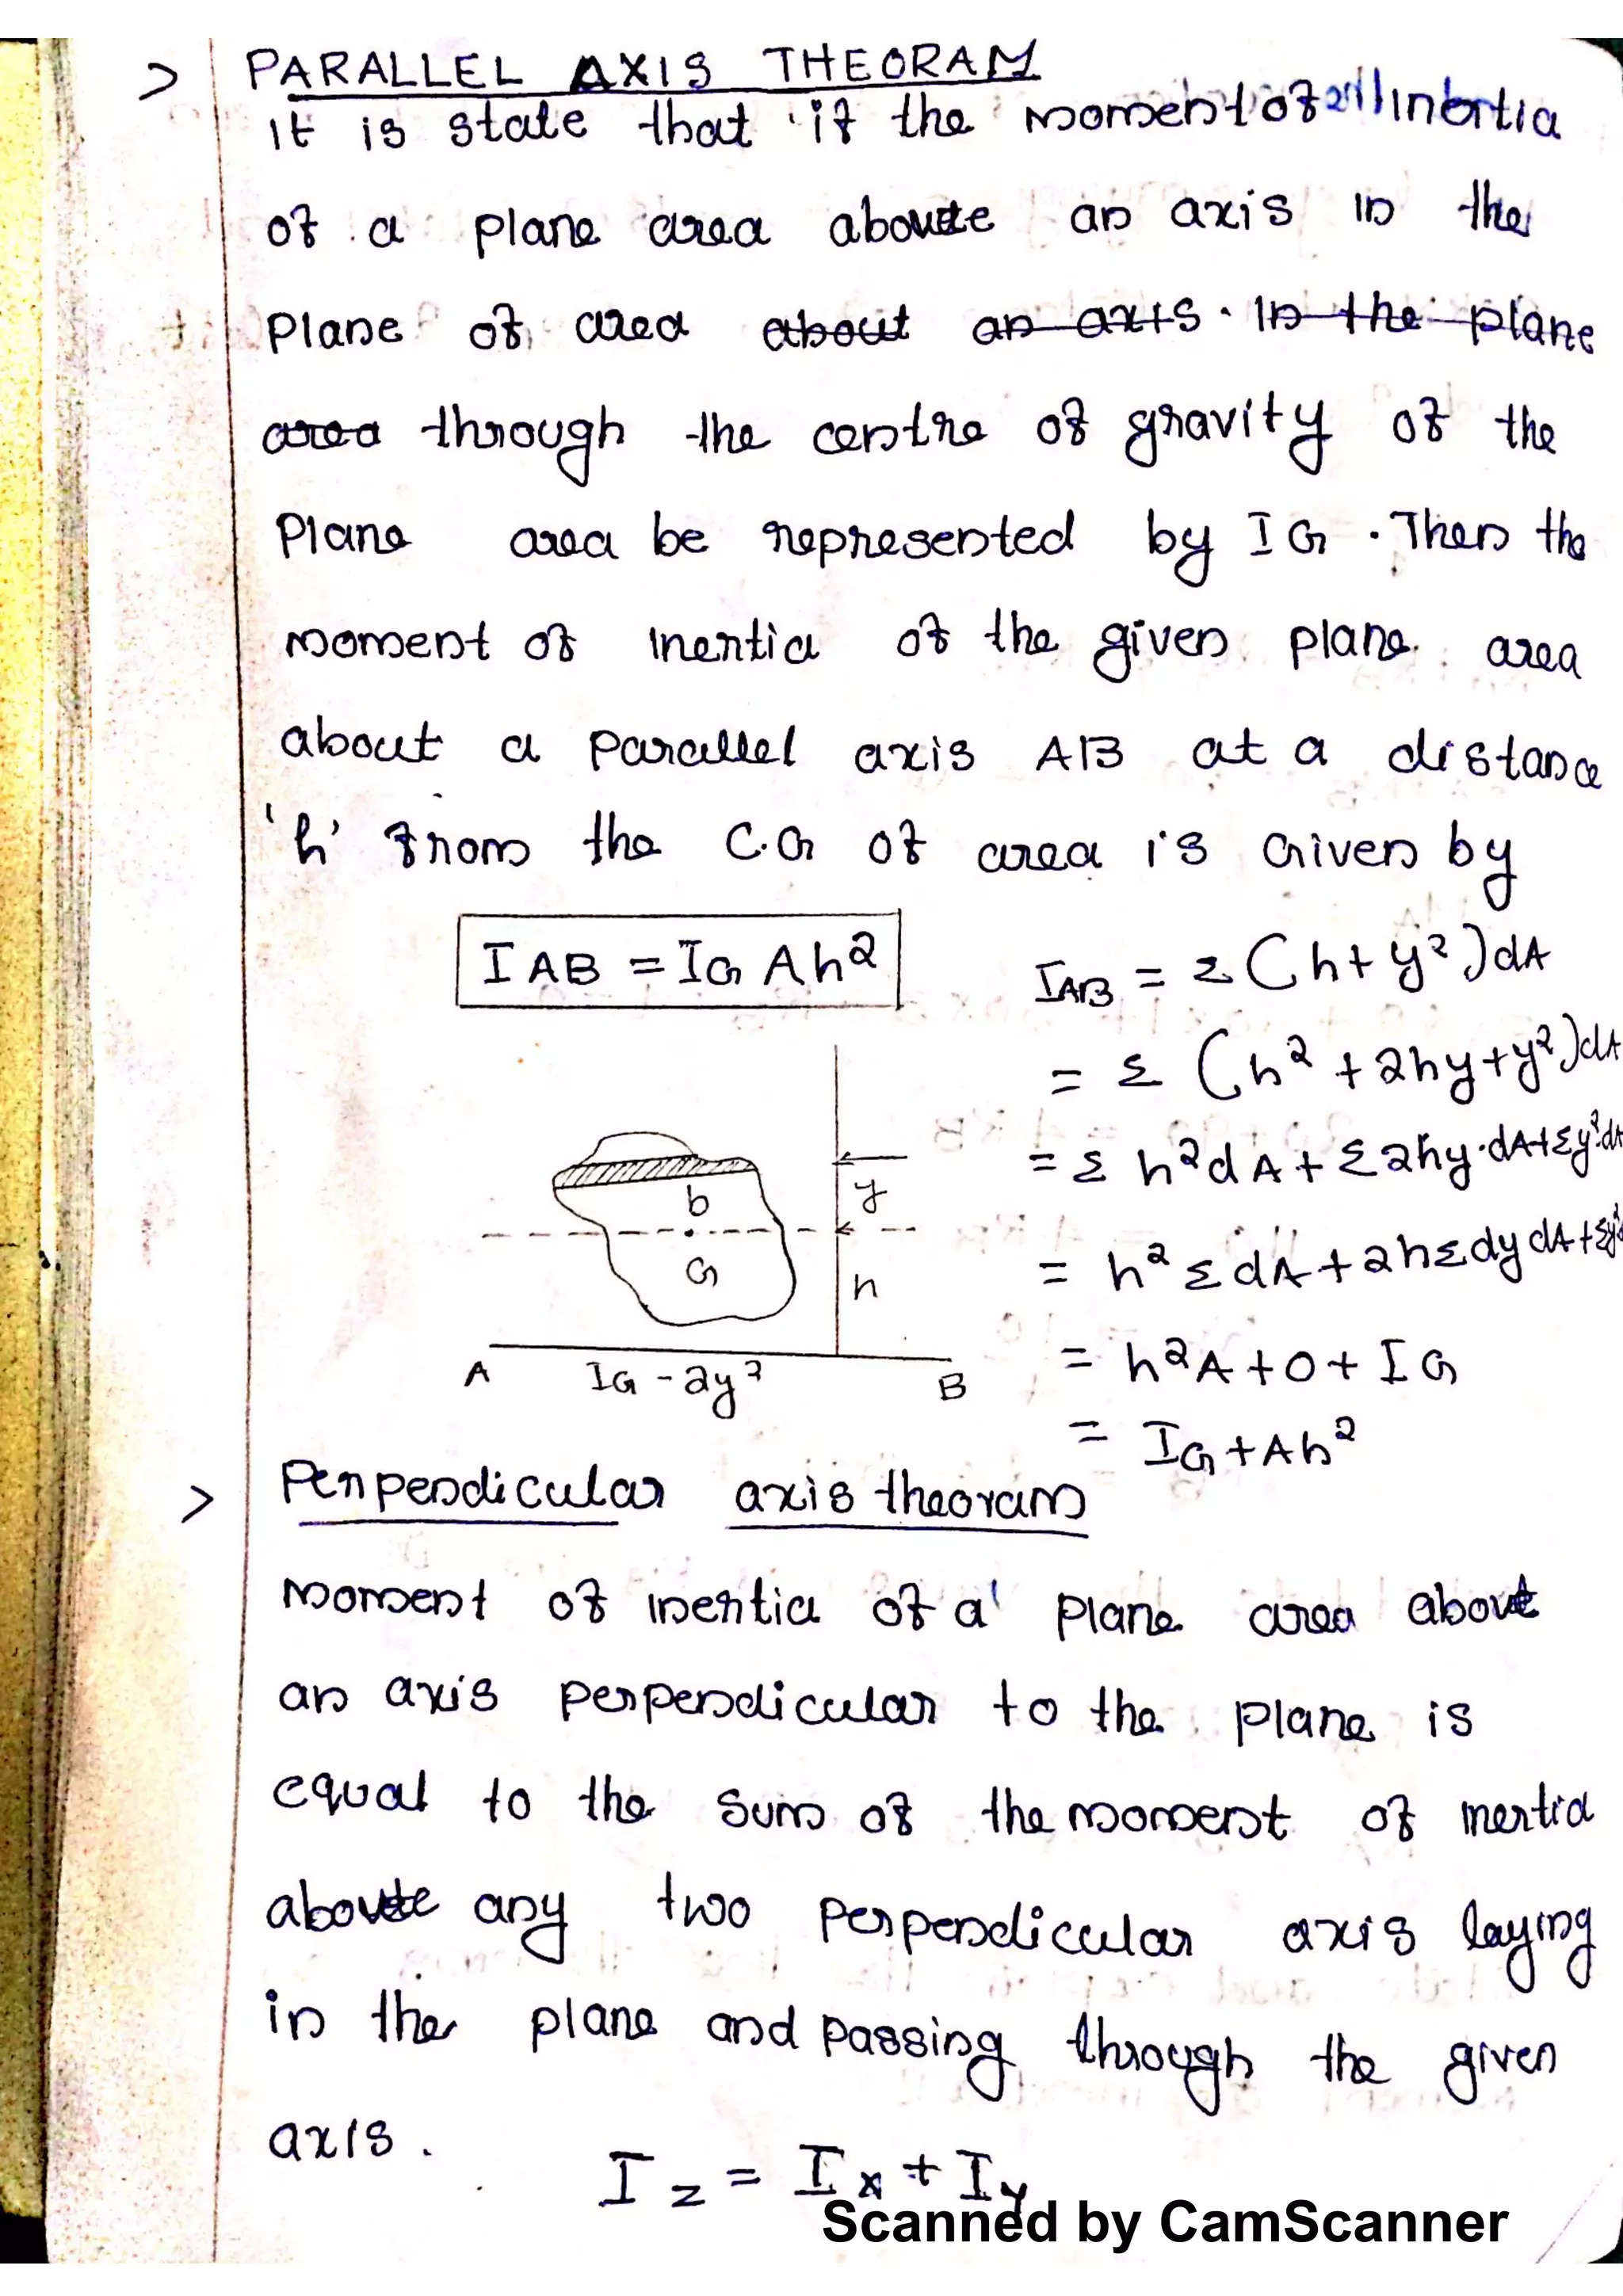 > PARALLEL AXIS THEORAM
It is state that if the moment of Inertia
of a plane area above an axis in the
Plane of area about an axis. In the plane
area through the centre of gravity of the
Plane area be represented by IG. Then the
moment of inertia of the given plane area
about a parallel axis AB at a distance
'h' from the C.G of area is Given by
IAB = IG Ah²
IAB = Σ(h+y²)dA
= Σ (h² + 2hy+y²)dA
= Σ h²dA + Σ2hy·dA+Σy²·dA
= h² ΣdA + 2hΣdydA+Σy²
= h²A + 0 + IG
= IG + Ah²
y
b
G
h
A
IG - 2y²
B
> Perpendicular axis theoram
Moment of inertia of a plane area about
an axis perpendicular to the plane is
equal to the sum of the moment of inertia
above any two perpendicular axis laying
in the plane and passing through the given
axis.
Iz = Ix + Iy
Scanned by CamScanner